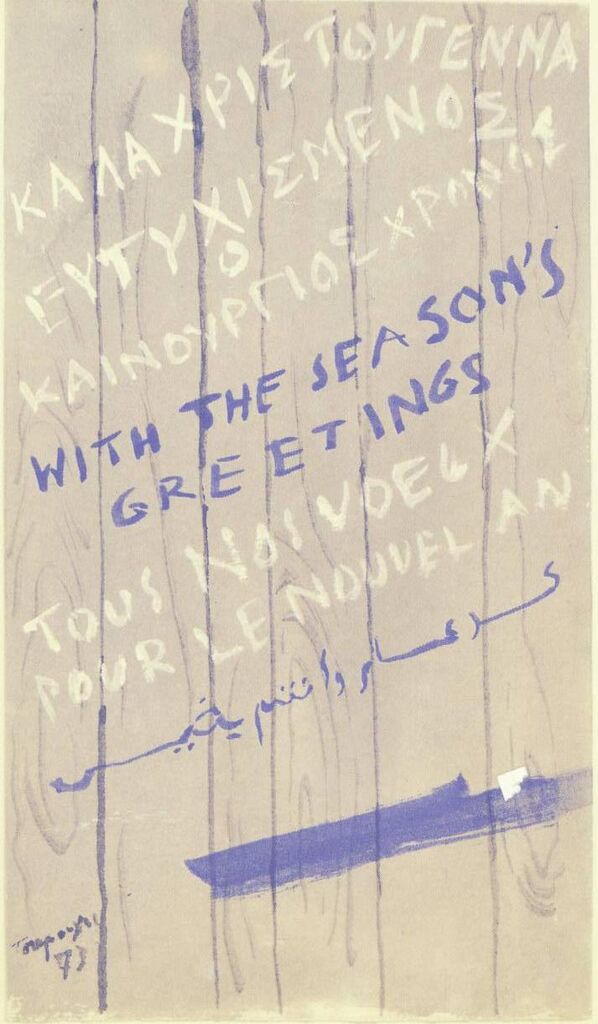 ΚΑΛΑ ΧΡΙΣΤΟΥΓΕΝΝΑ
ΕΥΤΥΧΙΣΜΕΝΟΣ
Ο
ΚΑΙΝΟΥΡΓΙΟΣ ΧΡΟΝΟΣ
WITH THE SEASON'S
GREETINGS
TOUS NOS VOEUX
POUR LE NOUVEL AN
كل عام وانتم بخير
73